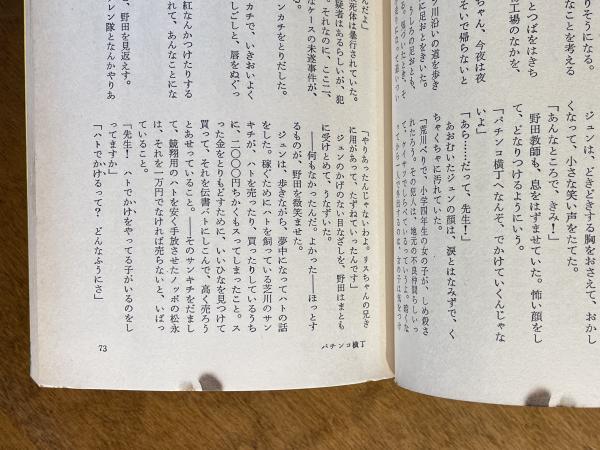 りそうになる。
なことを考える
工場のなかを、
とつばをはきち
そいで帰らないと
ちゃん、今夜は夜
川沿いの道を歩き
に足おとをきいた。
うしろの足おとも、
ジュンは、どきどきする胸をおさえて、おかし
くなって、小さな笑い声をたてた。
「あんなところで、きみ！」
野田教師も、息をはずませていた。怖い顔をし
て、どなりつけるようにいう。
「パチンコ横丁へなんぞ、でかけていくんじゃな
いよ」
「あら……だって、先生！」
あおむいたジュンの顔は、涙とはなみずで、く
ちゃくちゃに汚れていた。
「荒川べりで、小学四年生の女の子が、しめ殺さ
れたろう。その犯人は、地元の不良仲間らしいっ
て、ケイサツでしらべているっていう
んだよ」
死体は暴行されていた。
疑者はあるらしいが、犯
。それなのに、ここ二、
なケースの未遂事件が、
ンカチをとりだした。
カチで、いきおいよく
しごしと、唇をぬぐっ
紅なんかつけたりする
れて、あんなことにな
す。野田を見返えす。
レン隊となんかやりあ
「やりあったんじゃないわよ。リスちゃんの兄き
に用があって、たずねていったんです」
ジュンのかげのない目なざしを、野田はまとも
に受けとめて、うなずいた。
――何もなかったんだ。よかった――ほっとす
るものが、野田を微笑ませた。
ジュンは、歩きながら、夢中になってハトの話
をした。稼ぐためにハトを飼っている芝川のサン
キチが、ハトを売ったり、買ったりしているうち
に、二〇〇〇円ちかくもスってしまったこと。ス
った金をとりもどすために、いいひなを見つけて
買って、それを伝書バトにしこんで、高く売ろう
とあせっていること。――そのサンキチをだまし
て、競翔用のハトを安く手放させたノッポの松永
は、それを一万円でなければ売らないと、いばっ
ていること。
「先生！ ハトでかけをやってる子がいるのをし
ってますか」
「ハトでかけるって？ どんなふうにさ」
パチンコ横丁
73